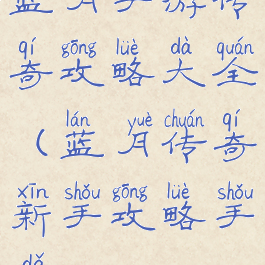 蓝月手游传
qí gōng lüè dà quán
奇攻略大全
lán yuè chuán qí
(蓝月传奇
xīn shǒu gōng lüè shǒu
新手攻略手
dǎ